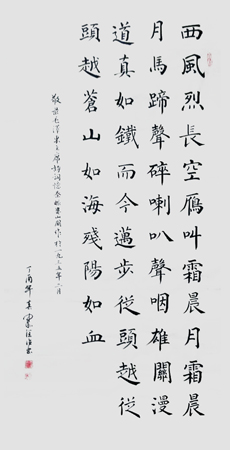 西風烈長空鴈叫霜晨月霜晨
月馬蹄聲碎喇叭聲咽雄關漫
道真如鐵而今邁步從頭越從
頭越蒼山如海殘陽如血
敬录毛澤東主席詩詞憶秦娥婁山關作於一九三五年二月
丁酉年